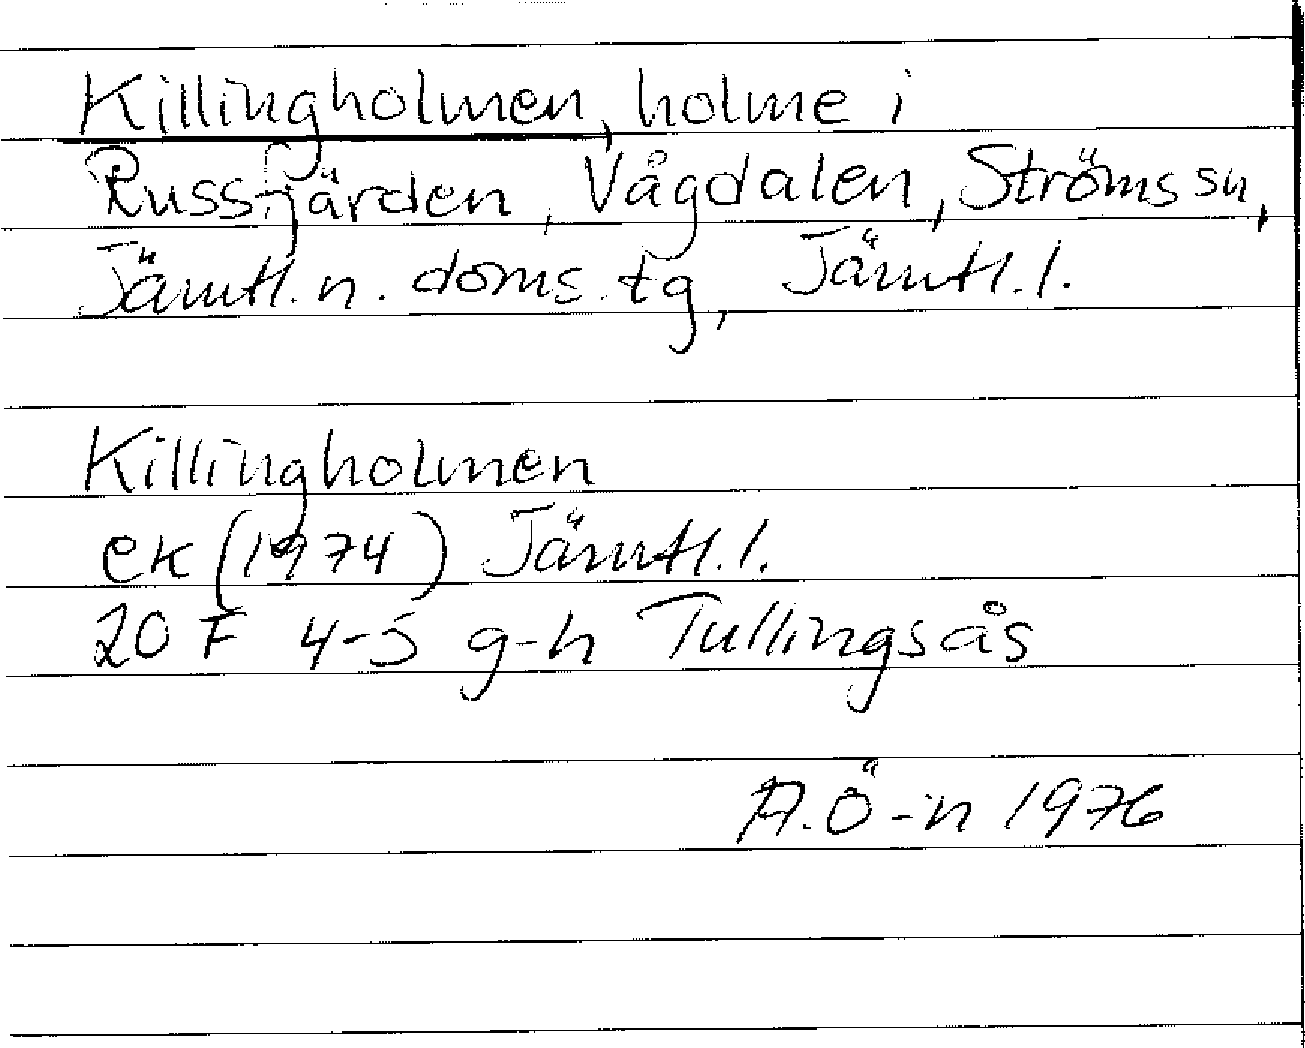 Killingholmen, holme i
Russfjärden, Vågdalen, Ströms sn,
Jämtl. n. doms. tg, Jämtl. l.
Killingholmen
ek (1974) Jämtl. l.
20 F 4-5 g-h Tullingsås
A. Ö-n 1976